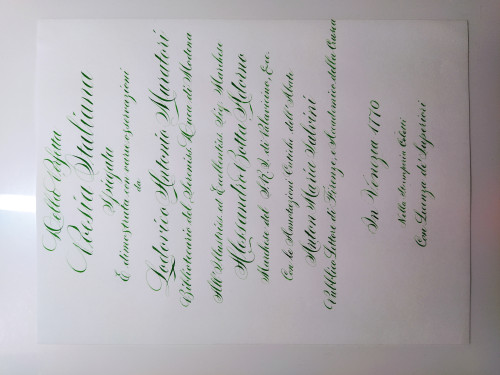 Della Perfetta
Poesia Italiana
Spiegata
E dimostrata con varie osservazioni
da
Lodovico Antonio Muratori
Bibliotecario del Sereniss. Duca di Modena
All' Illustriss. ed Eccellentiss. Sig. Marchese
Alessandro Botta Adorno
Marchese del S.R.I. di Pallavicino, Ecc.
Con le Annotazioni Critiche dell' Abate
Anton Maria Salvini
Pubblico Lettore di Firenze, e Accademico della Crusca
In Venezia 1770
Nella Stamperia
Con Licenza de' Superiori